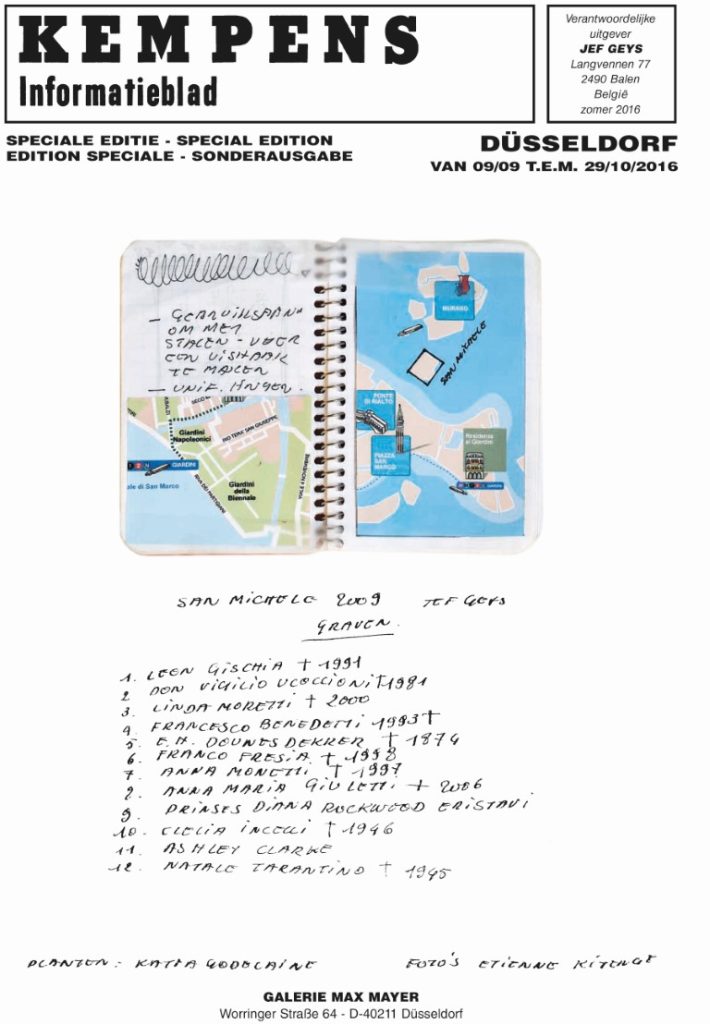 KEMPENS
Informatieblad
Verantwoordelijke
uitgever
JEF GEYS
Langvennen 77
2490 Balen
België
zomer 2016
SPECIALE EDITIE - SPECIAL EDITION
EDITION SPECIALE - SONDERAUSGABE
DÜSSELDORF
VAN 09/09 T.E.M. 29/10/2016
OM MET
STALEN - VOER
EEN VISHAAK
TE MAKEN
Giardini
Napoleonici
RIO TERA' SAN GIUSEPPE
GIARDINI
ale di San Marco
Giardini
della
Biennale
RIVA DEI PARTIGIANI
VIALE 4 NOVEMBRE
MURANO
SAN MICHELE
PONTE
DI RIALTO
PIAZZA
SAN
MARCO
Residenza
ai Giardini
GIARDINI
SAN MICHELE 2009 JEF GEYS
GRAVEN.
1. LEON GISCHIA † 1991
2 DON VIGILIO UCOCCIONI † 1981
3. LINDA MORETTI † 2000
4. FRANCESCO BENEDETTI 1993 †
5. E.H. DOUNES DEKKER † 1874
6. FRANCO FRESIA † 1998
7. ANNA MONETTI † 1997
8. ANNA MARIA GIULETTI † 2006
9. PRINSES DIANA ROCKWOOD ERISTAVI
10. CLELIA INCELLI † 1946
11. ASHLEY CLARKE
12. NATALE TARANTINO † 1945
PLANTEN: KATYA GODELAINE FOTO'S ETIENNE KITENGE
GALERIE MAX MAYER
Worringer Straße 64 - D-40211 Düsseldorf